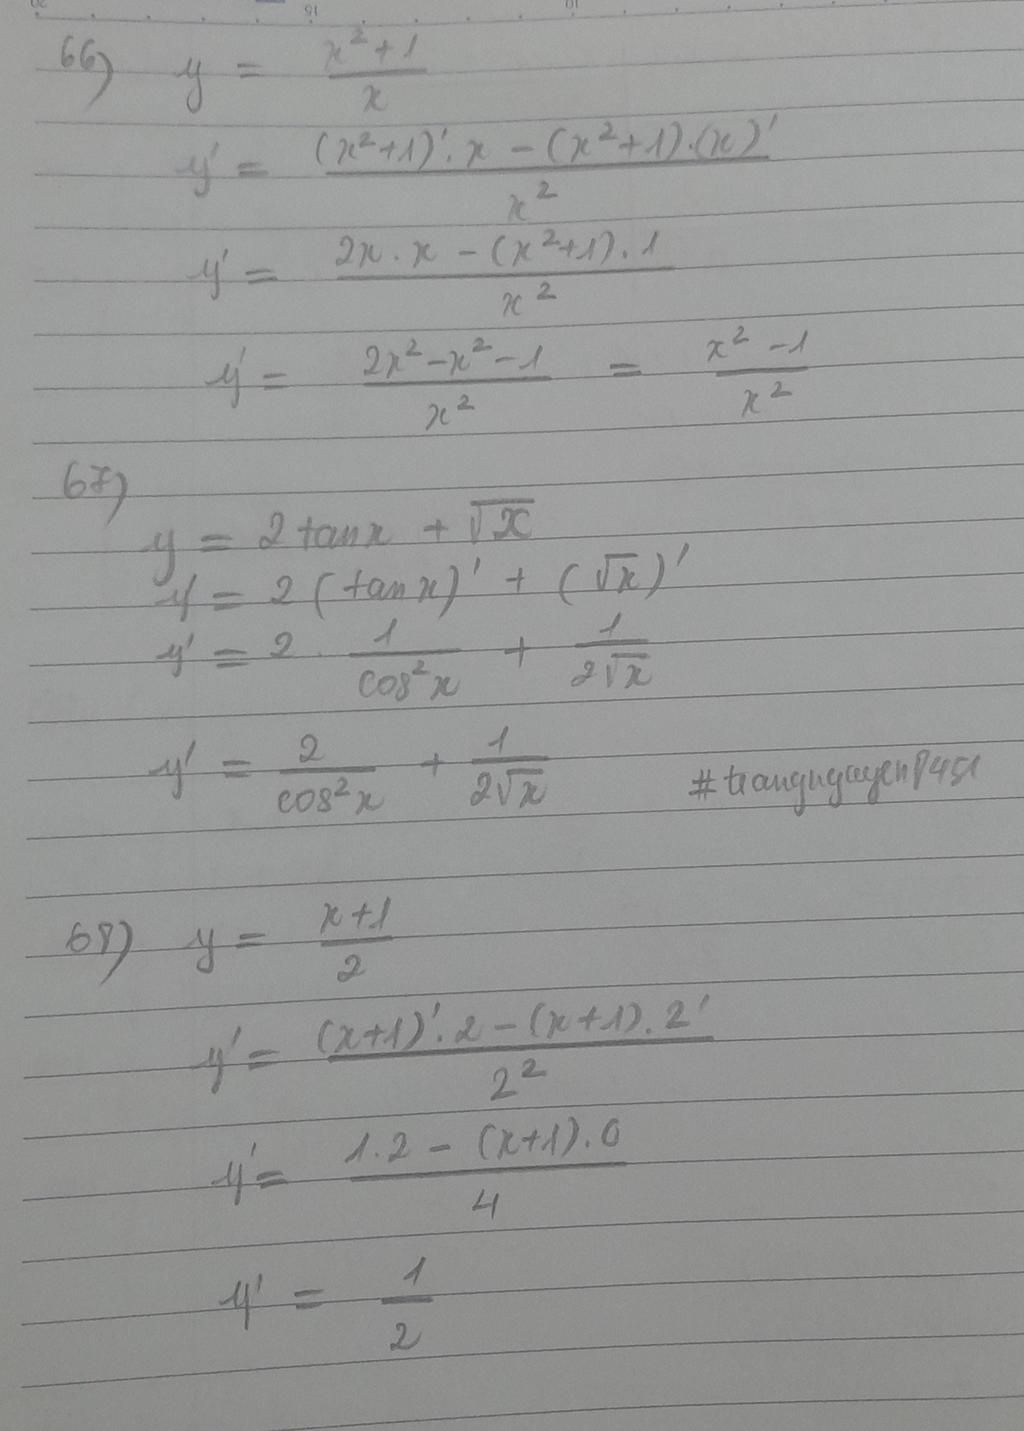 66) y = \frac{x^2+1}{x}
y' = \frac{(x^2+1)'.x - (x^2+1).(x)'}{x^2}
y' = \frac{2x.x - (x^2+1).1}{x^2}
y' = \frac{2x^2-x^2-1}{x^2} = \frac{x^2-1}{x^2}
67)
y = 2tanx + \sqrt{x}
y' = 2(tanx)' + (\sqrt{x})'
y' = 2 . \frac{1}{cos^2x} + \frac{1}{2\sqrt{x}}
y' = \frac{2}{cos^2x} + \frac{1}{2\sqrt{x}}
68) y = \frac{x+1}{2}
y' = \frac{(x+1)'.2-(x+1).2'}{2^2}
y' = \frac{1.2 - (x+1).0}{4}
y' = \frac{1}{2}